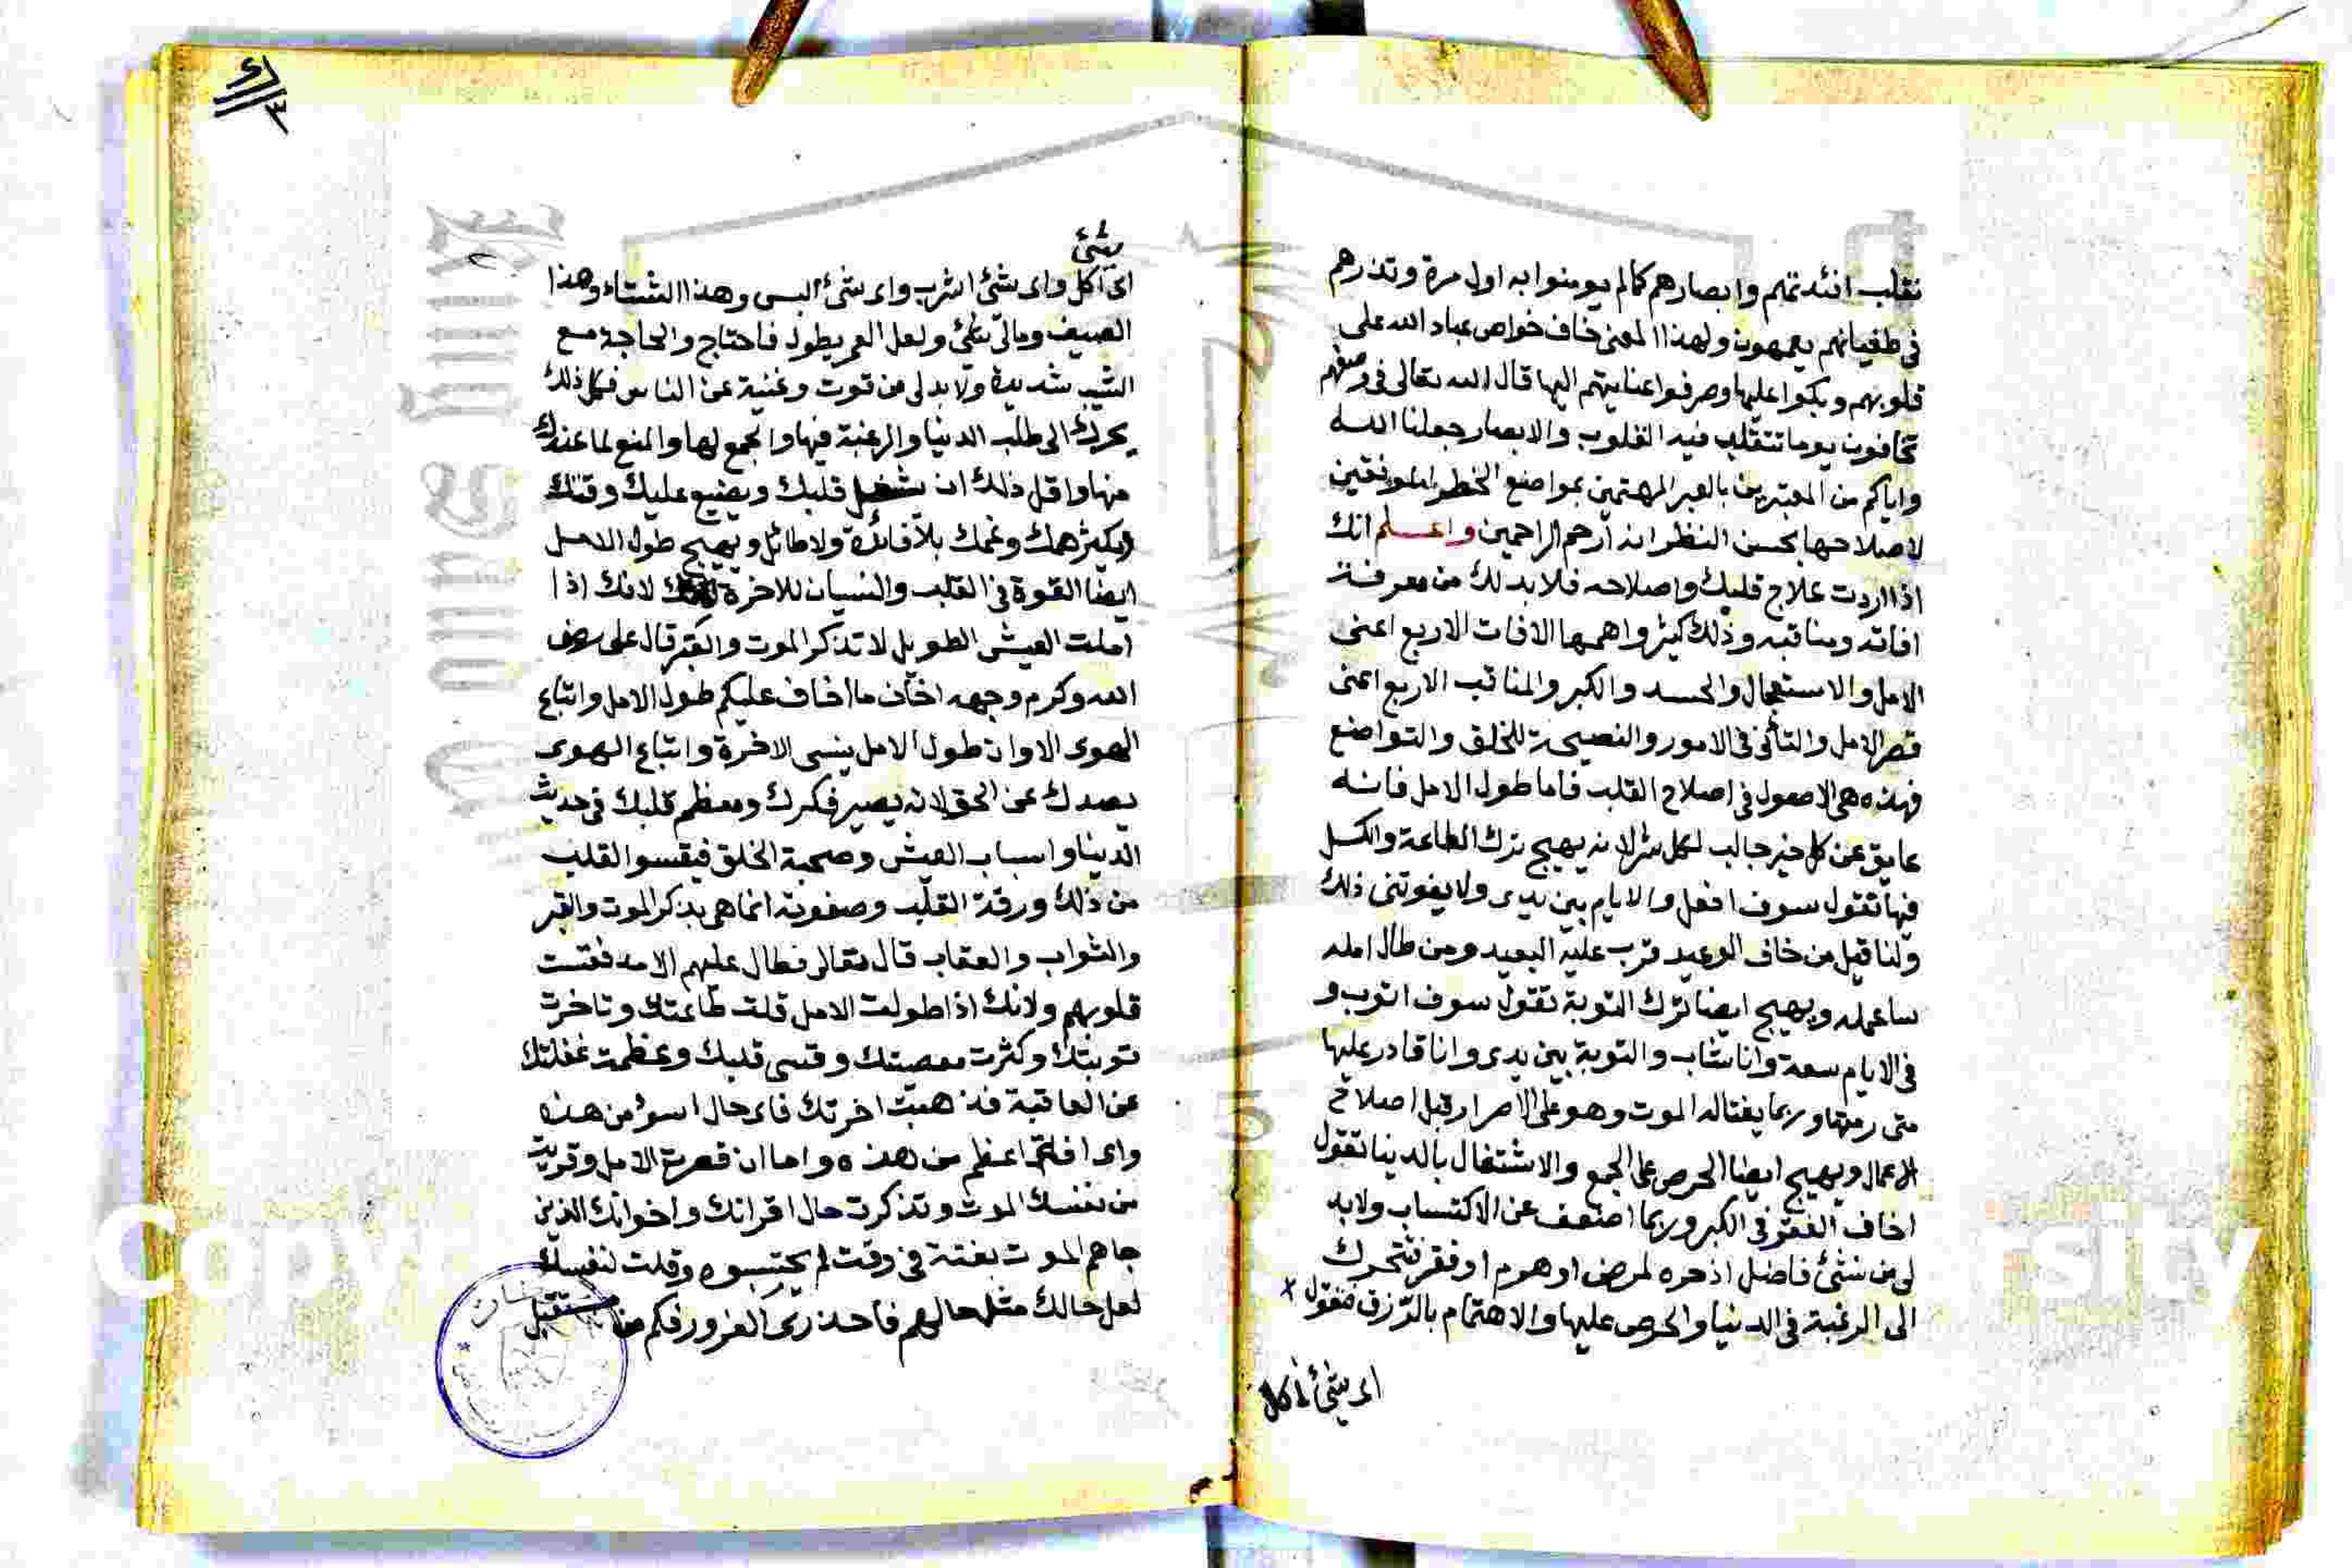 نقلب افئدتهم وابصارهم كما لم يومنوا به اول مرة وتذرهم
في طغيانهم يعمهون ولهذا المعنى خاف خواص عباد الله على
قلوبهم وبكوا عليها وصرفوا عنايتهم اليها قال الله تعالى في وصفهم
تخافون يوما تتقلب فيه القلوب والابصار جعلنا الله
واياكم من المعتبرين بالعبر المهتمين بمواضع الخطر الموفقين
لاصلاحها بحسن النظر انه ارحم الراحمين واعلم انك
اذا اردت علاج قلبك واصلاحه فلا بد لك من معرفة
افاته ومناقبه وذلك كثير واهمها الافات الاربع اعنى
الامل والاستعجال والحسد والكبر والمناقب الاربع اعنى
قصر الامل والتأنى في الامور والنصيحة للخلق والتواضع
فهذه هي الاصول في اصلاح القلب فاما طول الامل فانه
عايق عن كل خير جالب لكل شر لانه يهيج ترك الطاعة والكسل
فيها تقول سوف افعل والايام بين يدى ولا يفوتنى ذلك
ولنا قيل من خاف الوعيد قرب عليه البعيد ومن طال امله
ساعمله ويهيج ايضا ترك التوبة تقول سوف اتوب و
في الايام سعة وانا شاب والتوبة بين يدى وانا قادر عليها
متى رمتها وربما يغتاله الموت وهو على الاصرار قبل اصلاح
الاعمال ويهيج ايضا الحرص على الجمع والاشتغال بالدنيا تقول
اخاف الفقر في الكبر وربما اضعف عن الاكتساب ولابد
لى من شئ فاضل اذخره لمرض او هرم او فقر فتتحرك
الى الرغبة في الدنيا والحرص عليها والاهتمام بالرزق فتقول
اى شئ اكل
شئ
اى اكل واى شئ اشرب واى شئ البس وهذا الشتاء وهذا
الصيف ومالى شئ ولعل العمر يطول فاحتاج والحاجة مع
الشيب شديدة ولا بد لى من قوت وغنية عن الناس فكل ذلك
يحرك الى طلب الدنيا والرغبة فيها والجمع لها والمنع لما عندك
منها واقل ذلك ان يشغل قلبك ويضيع عليك وقتك
ويكثر همك وغمك بلا فائدة ولا طائل ويهيج طول الامل
ايضا القوة في القلب والنسيان للاخرة لانك اذا
املت العيش الطويل لا تذكر الموت والقبر قال على رضى
الله وكرم وجهه اخاف ما اخاف عليكم طول الامل واتباع
الهوى الا وان طول الامل ينسى الاخرة واتباع الهوى
يصدك عن الحق لانه يصير فكرك ومعظم قلبك في حديث
الدنيا واسباب العيش وصحبة الخلق فيقسوا القلب
من ذلك ورقة القلب وصفوته انما هي بذكر الموت والقبر
والثواب والعقاب قال تعالى فطال عليهم الامد فقست
قلوبهم ولانك اذا طولت الامل قلت طاعتك وتاخرت
توبتك وكثرت معصيتك وقسى قلبك وعظمت غفلتك
عن العاقبة فذهبت اخرتك فاى حال اسوء من هذه
واى افة اعظم من هذه واما ان قصرت الامل وقربت
من نفسك الموت وتذكرت حال اقرانك واخوانك الذين
جاهم الموت بغتة في وقت لم يحتسبوه وقلت لنفسك
لعل حالك مثل حالهم فاحذرى الغرور فكم من مستقبل
Copy
rsity